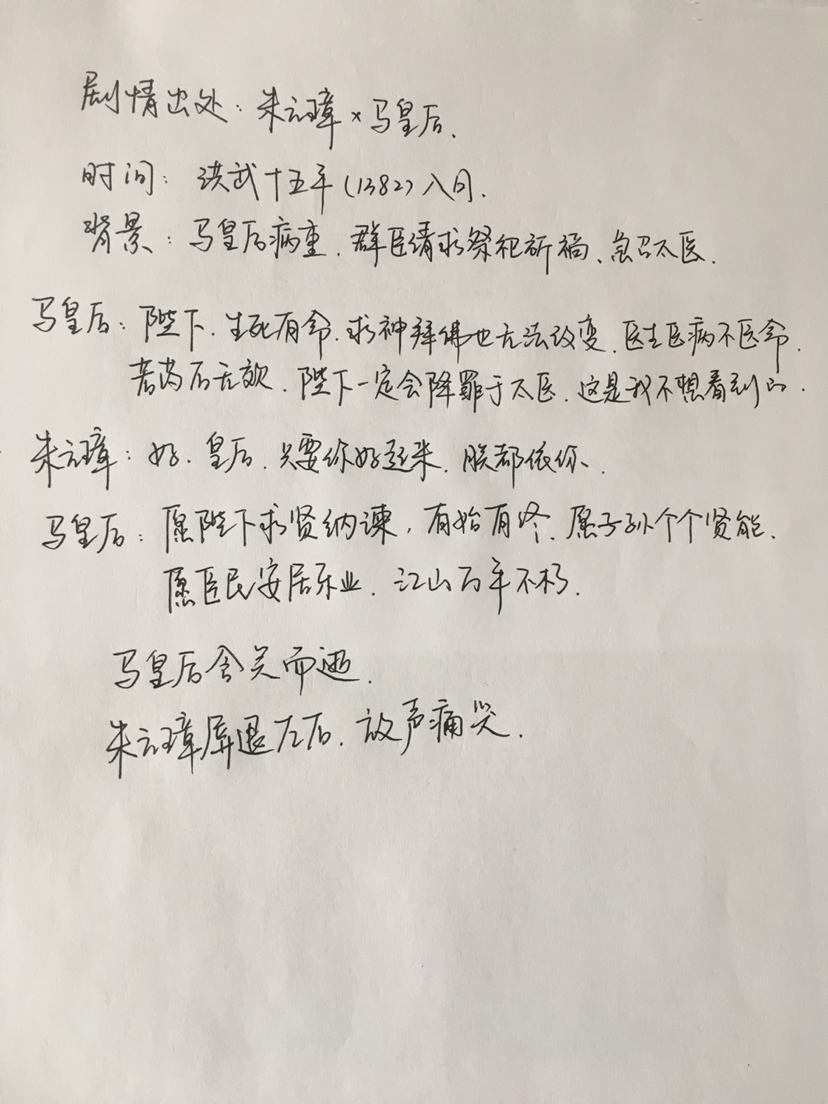 剧情出处：朱元璋×马皇后.
时间：洪武十五年(1382)八月.
背景：马皇后病重.群臣请求祭祀祈福、急召太医.
马皇后：陛下.生死有命.求神拜佛也无法改变.医生医病不医命.
若药石无效.陛下一定会降罪于太医.这是我不想看到的.
朱元璋：好.皇后.只要你好起来.朕都依你.
马皇后：愿陛下求贤纳谏，有始有终.愿子孙个个贤能.
愿臣民安居乐业.江山万年不朽.
马皇后含笑而逝.
朱元璋屏退左右.放声痛哭.